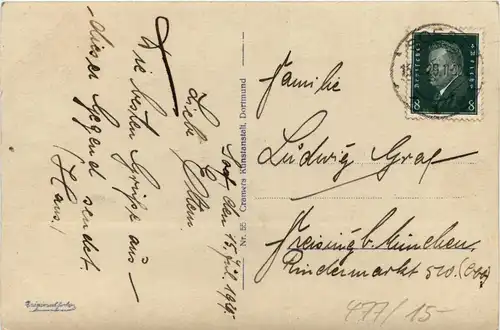 Soest, den 15. Juli 1929.
Liebe Eltern
Die besten Grüße aus
dieser Gegend sendet.
Hans.
Nr. 55 Cramers Kunstanstalt, Dortmund
Deutsches Reich
8 8
Familie
Ludwig Graf
Freising b. München.
Rindermarkt
477/15-